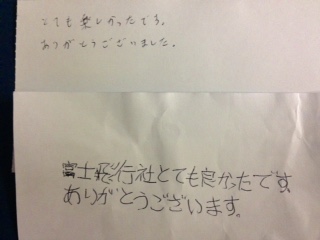 とても楽しかったです。
ありがとうございました。
富士飛行社とても良かったです。
ありがとうございます。